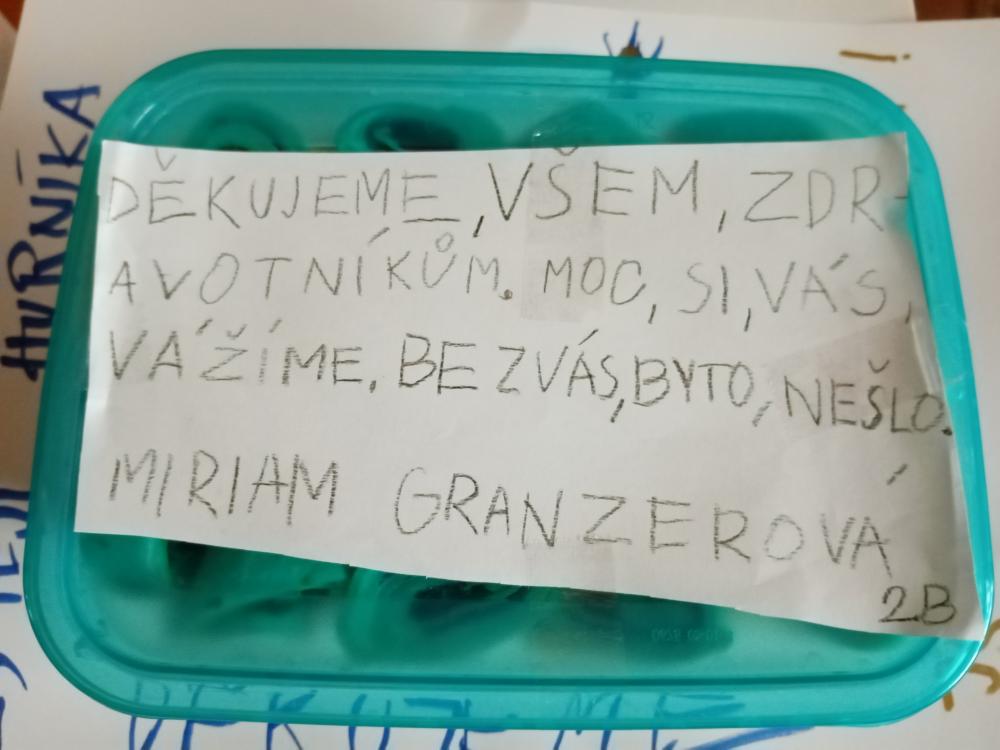 DĚKUJEME, VŠEM, ZDR-
AVOTNÍKŮM. MOC, SI, VÁS,
VÁŽÍME. BEZ VÁS, BYTO, NEŠLO.
MIRIAM GRANZEROVÁ
2.B
HURNÍKA
DĚKUJEME